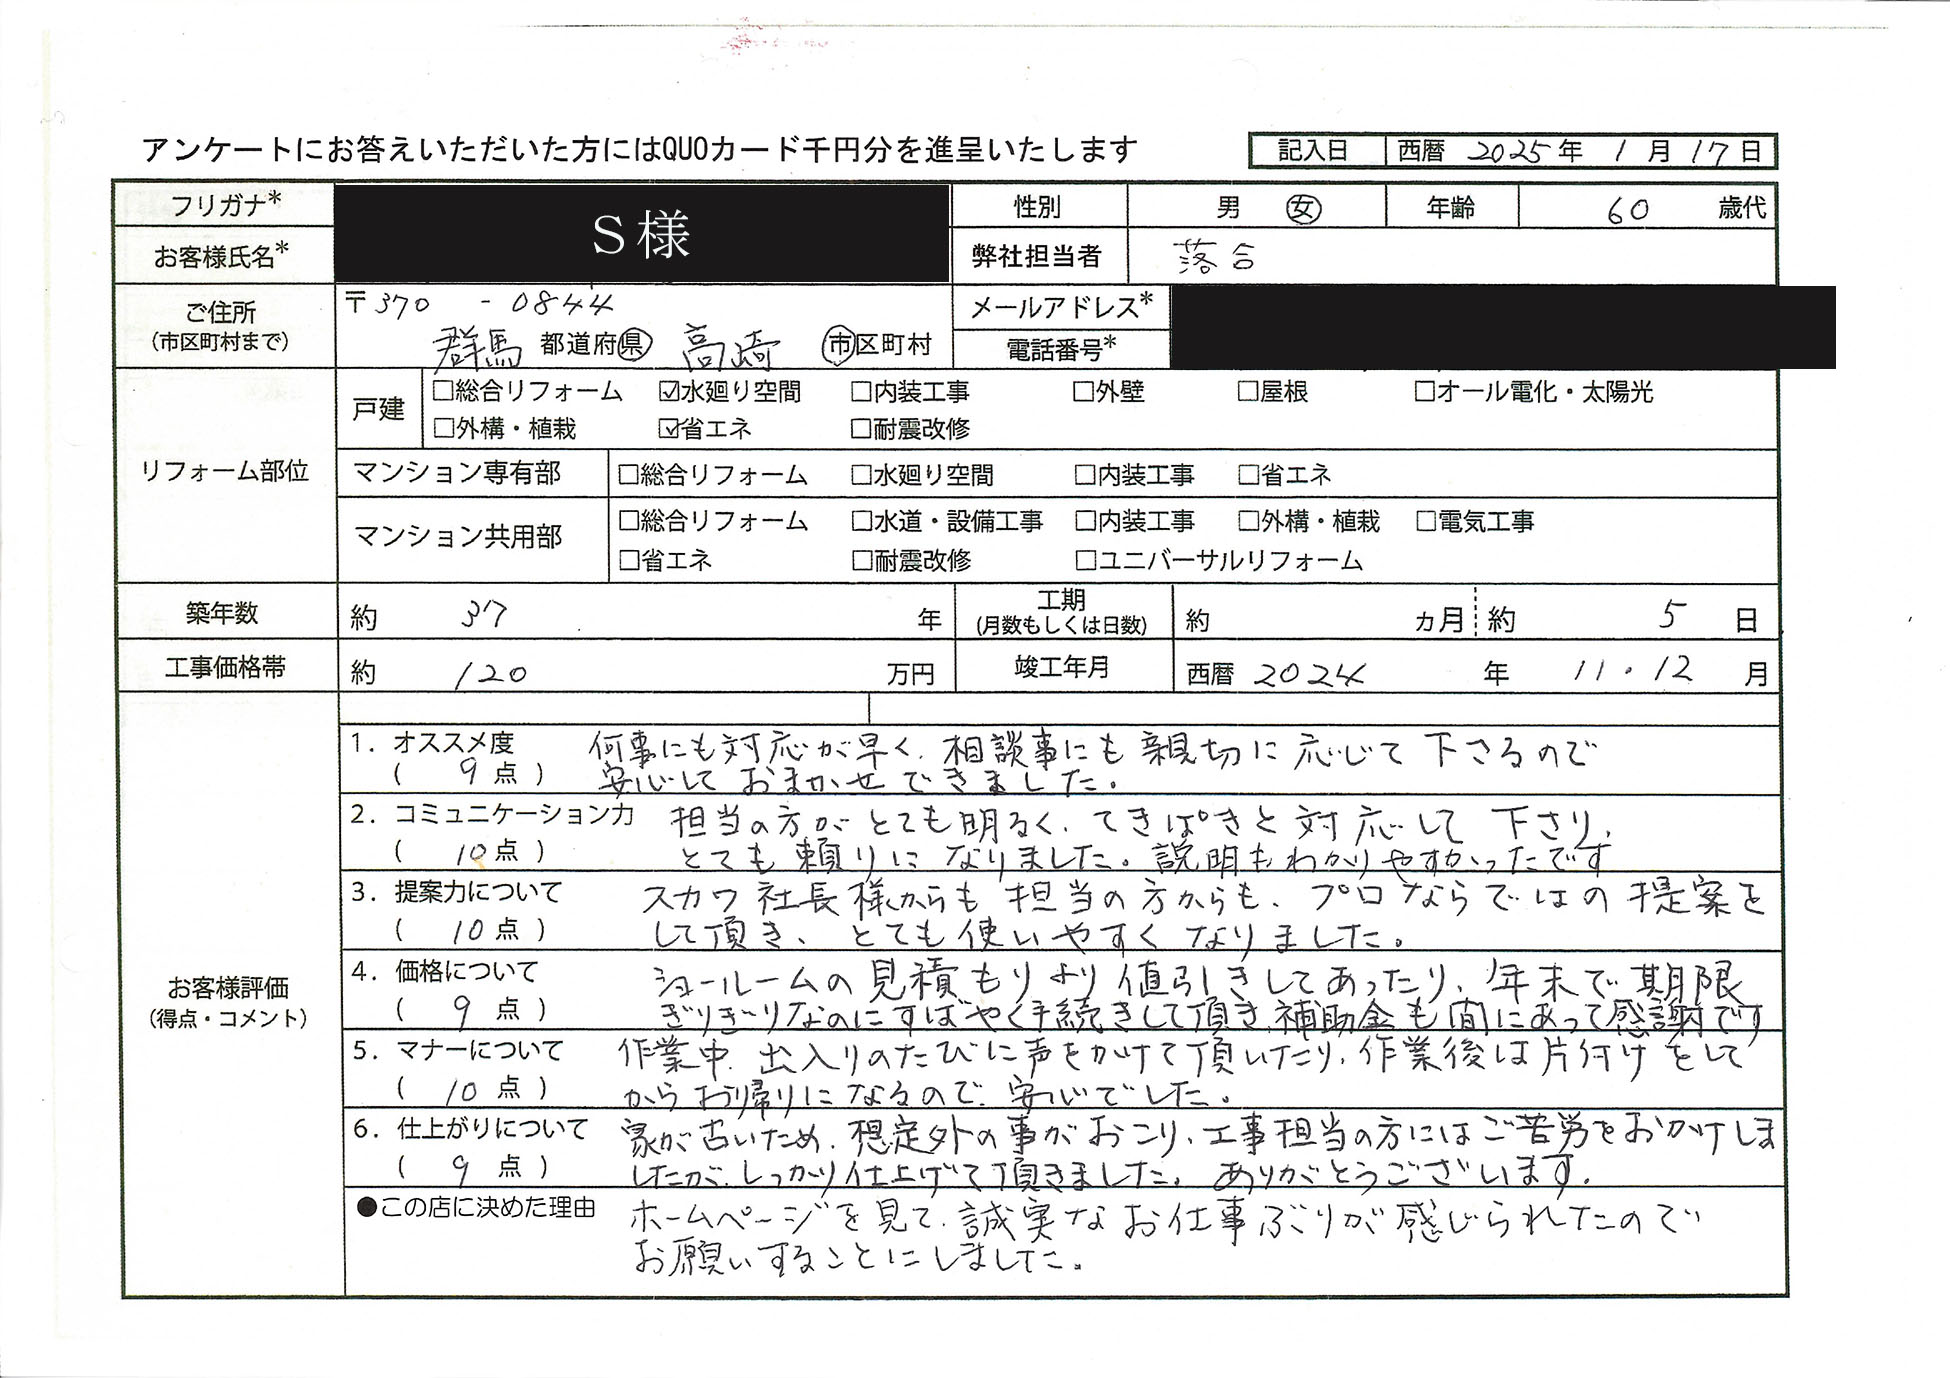 アンケートにお答えいただいた方にはQUOカード千円分を進呈いたします
記入日 西暦 2025 年 1 月 17 日
フリガナ* S様 性別 男 女 年齢 60 歳代
お客様氏名* 弊社担当者 落合
ご住所 〒370 - 0844 メールアドレス*
(市区町村まで) 群馬 都道府県 高崎 市区町村 電話番号*
リフォーム部位
戸建 □総合リフォーム ☑水廻り空間 □内装工事 □外壁 □屋根 □オール電化・太陽光
□外構・植栽 ☑省エネ □耐震改修
マンション専有部 □総合リフォーム □水廻り空間 □内装工事 □省エネ
マンション共用部 □総合リフォーム □水道・設備工事 □内装工事 □外構・植栽 □電気工事
□省エネ □耐震改修 □ユニバーサルリフォーム
築年数 約 37 年 工期 (月数もしくは日数) 約 ヵ月 約 5 日
工事価格帯 約 120 万円 竣工年月 西暦 2024 年 11・12 月
お客様評価
(得点・コメント)
1. オススメ度 何事にも対応が早く、相談事にも親切に応じて下さるので
( 9 点 ) 安心しておまかせできました。
2. コミュニケーション力 担当の方がとても明るく、てきぱきと対応して下さり、
( 10 点 ) とても頼りになりました。説明もわかりやすかったです
3. 提案力について スカワ社長様からも担当の方からも、プロならではの提案を
( 10 点 ) して頂き、とても使いやすくなりました。
4. 価格について ショールームの見積もりより値引きしてあったり、年末で期限
( 9 点 ) ぎりぎりなのにすばやく手続きして頂き、補助金も間にあって感謝です
5. マナーについて 作業中、出入りのたびに声をかけて頂いたり、作業後は片付けをして
( 10 点 ) からお帰りになるので、安心でした。
6. 仕上がりについて 家が古いため、想定外の事がおこり、工事担当の方にはご苦労をおかけしま
( 9 点 ) したが、しっかり仕上げて頂きました。ありがとうございます。
●この店に決めた理由 ホームページを見て、誠実なお仕事ぶりが感じられたので
お願いすることにしました。